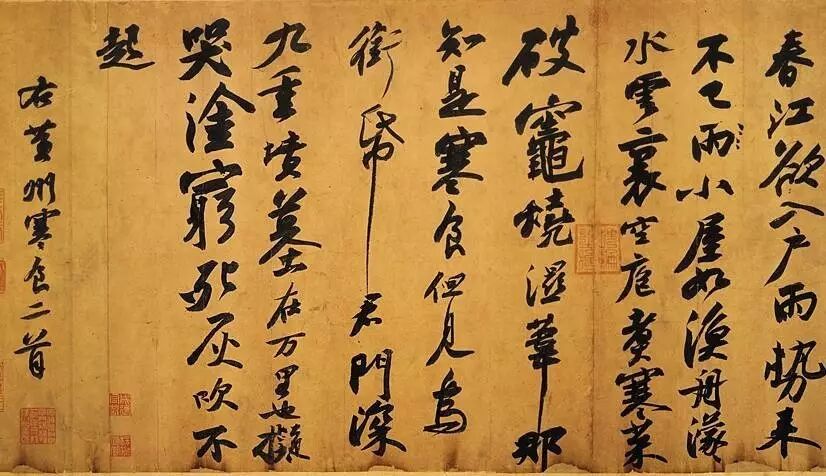 春江欲入户雨势来
不已雨小屋如渔舟濛〻
水云裏空庖煮寒菜
破竈燒湿葦那
知是寒食但見烏
銜帋君門深
九重墳墓在万里也擬
哭塗窮死灰吹不
起
右黄州寒食二首